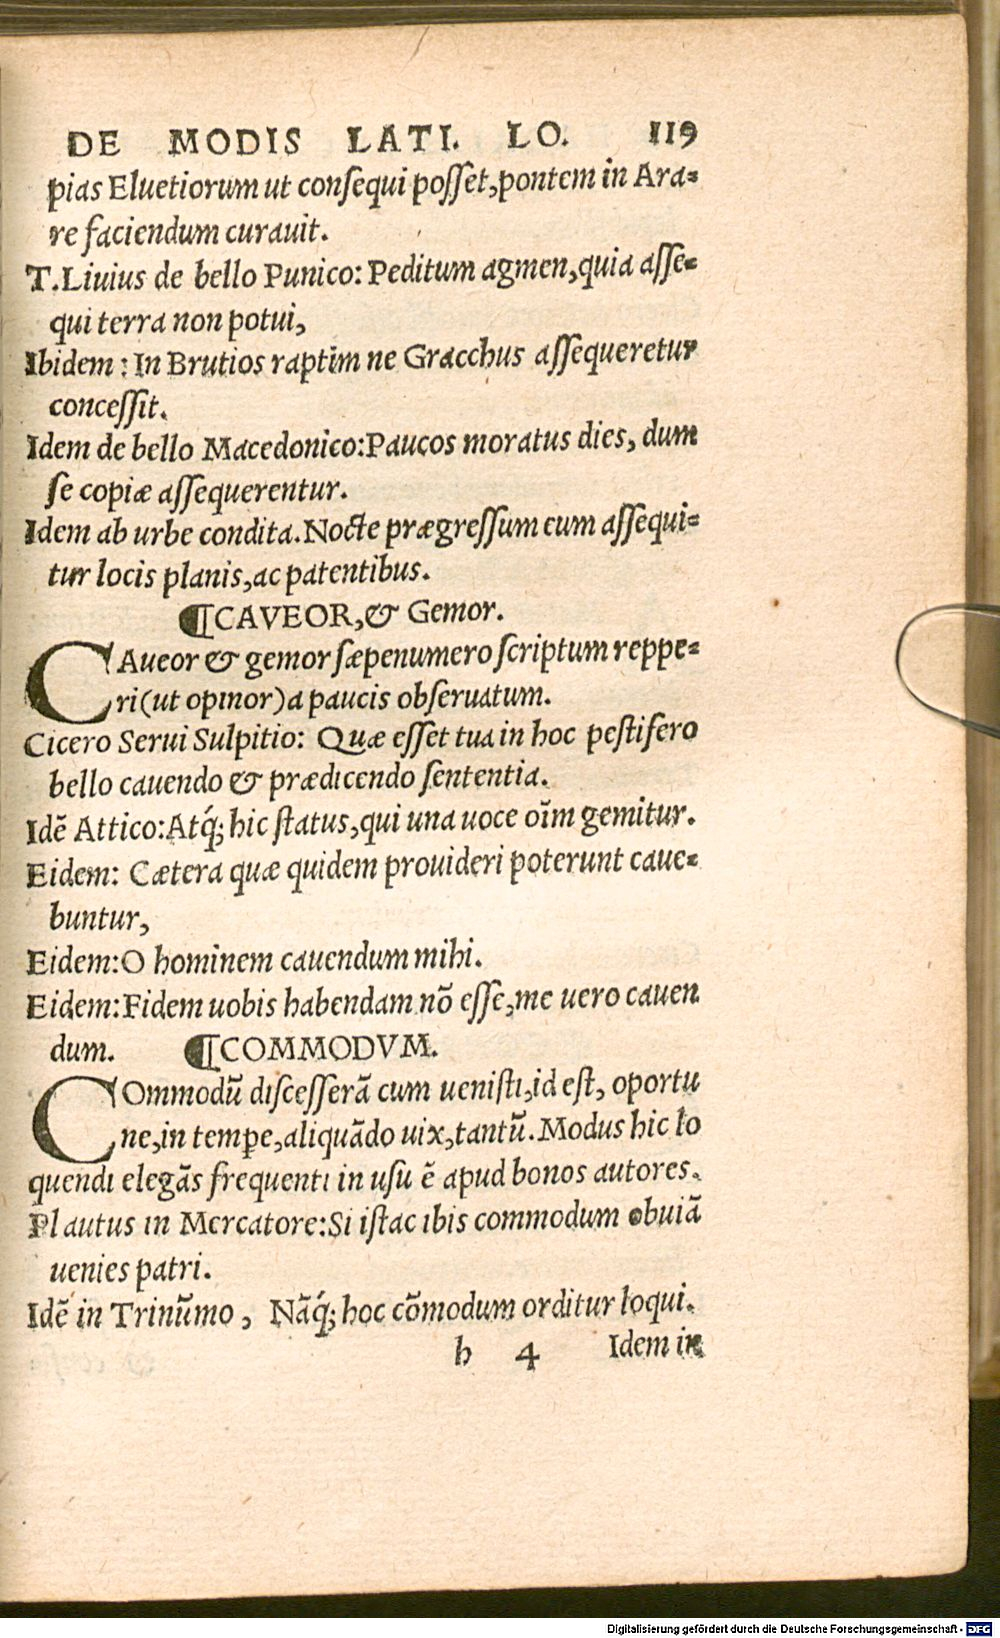 DE MODIS LATI. LO. 119
pias Eluetiorum ut consequi posset, pontem in Ara-
re faciendum curauit.
T. Liuius de bello Punico: Peditum agmen, quia asse-
qui terra non potui,
Ibidem: In Brutios raptim ne Gracchus assequeretur
concessit.
Idem de bello Macedonico: Paucos moratus dies, dum
se copiæ assequerentur.
Idem ab urbe condita. Nocte prægressum eum assequi-
tur locis planis, ac patentibus.
¶CAVEOR, & Gemor.
CAueor & gemor sæpenumero scriptum reppe-
ri (ut opinor) a paucis obseruatum.
Cicero Serui Sulpitio: Quæ esset tua in hoc pestifero
bello cauendo & prædicendo sententia.
Idē Attico: Atq́; hic status, qui una uoce oīm gemitur.
Eidem: Cætera quæ quidem prouideri poterunt caue-
buntur,
Eidem: O hominem cauendum mihi.
Eidem: Fidem uobis habendam nō esse, me uero cauen
dum. ¶COMMODVM.
COmmodū discesserā cum uenisti, id est, oportu
ne, in tempe, aliquādo uix, tantū. Modus hic lo
quendi elegās frequenti in usu ē apud bonos autores.
Plautus in Mercatore: Si istac ibis commodum obuiā
uenies patri.
Idē in Trinūmo, Nāq́; hoc cōmodum orditur loqui.
h 4 Idem in
Digitalisierung gefördert durch die Deutsche Forschungsgemeinschaft - DFG